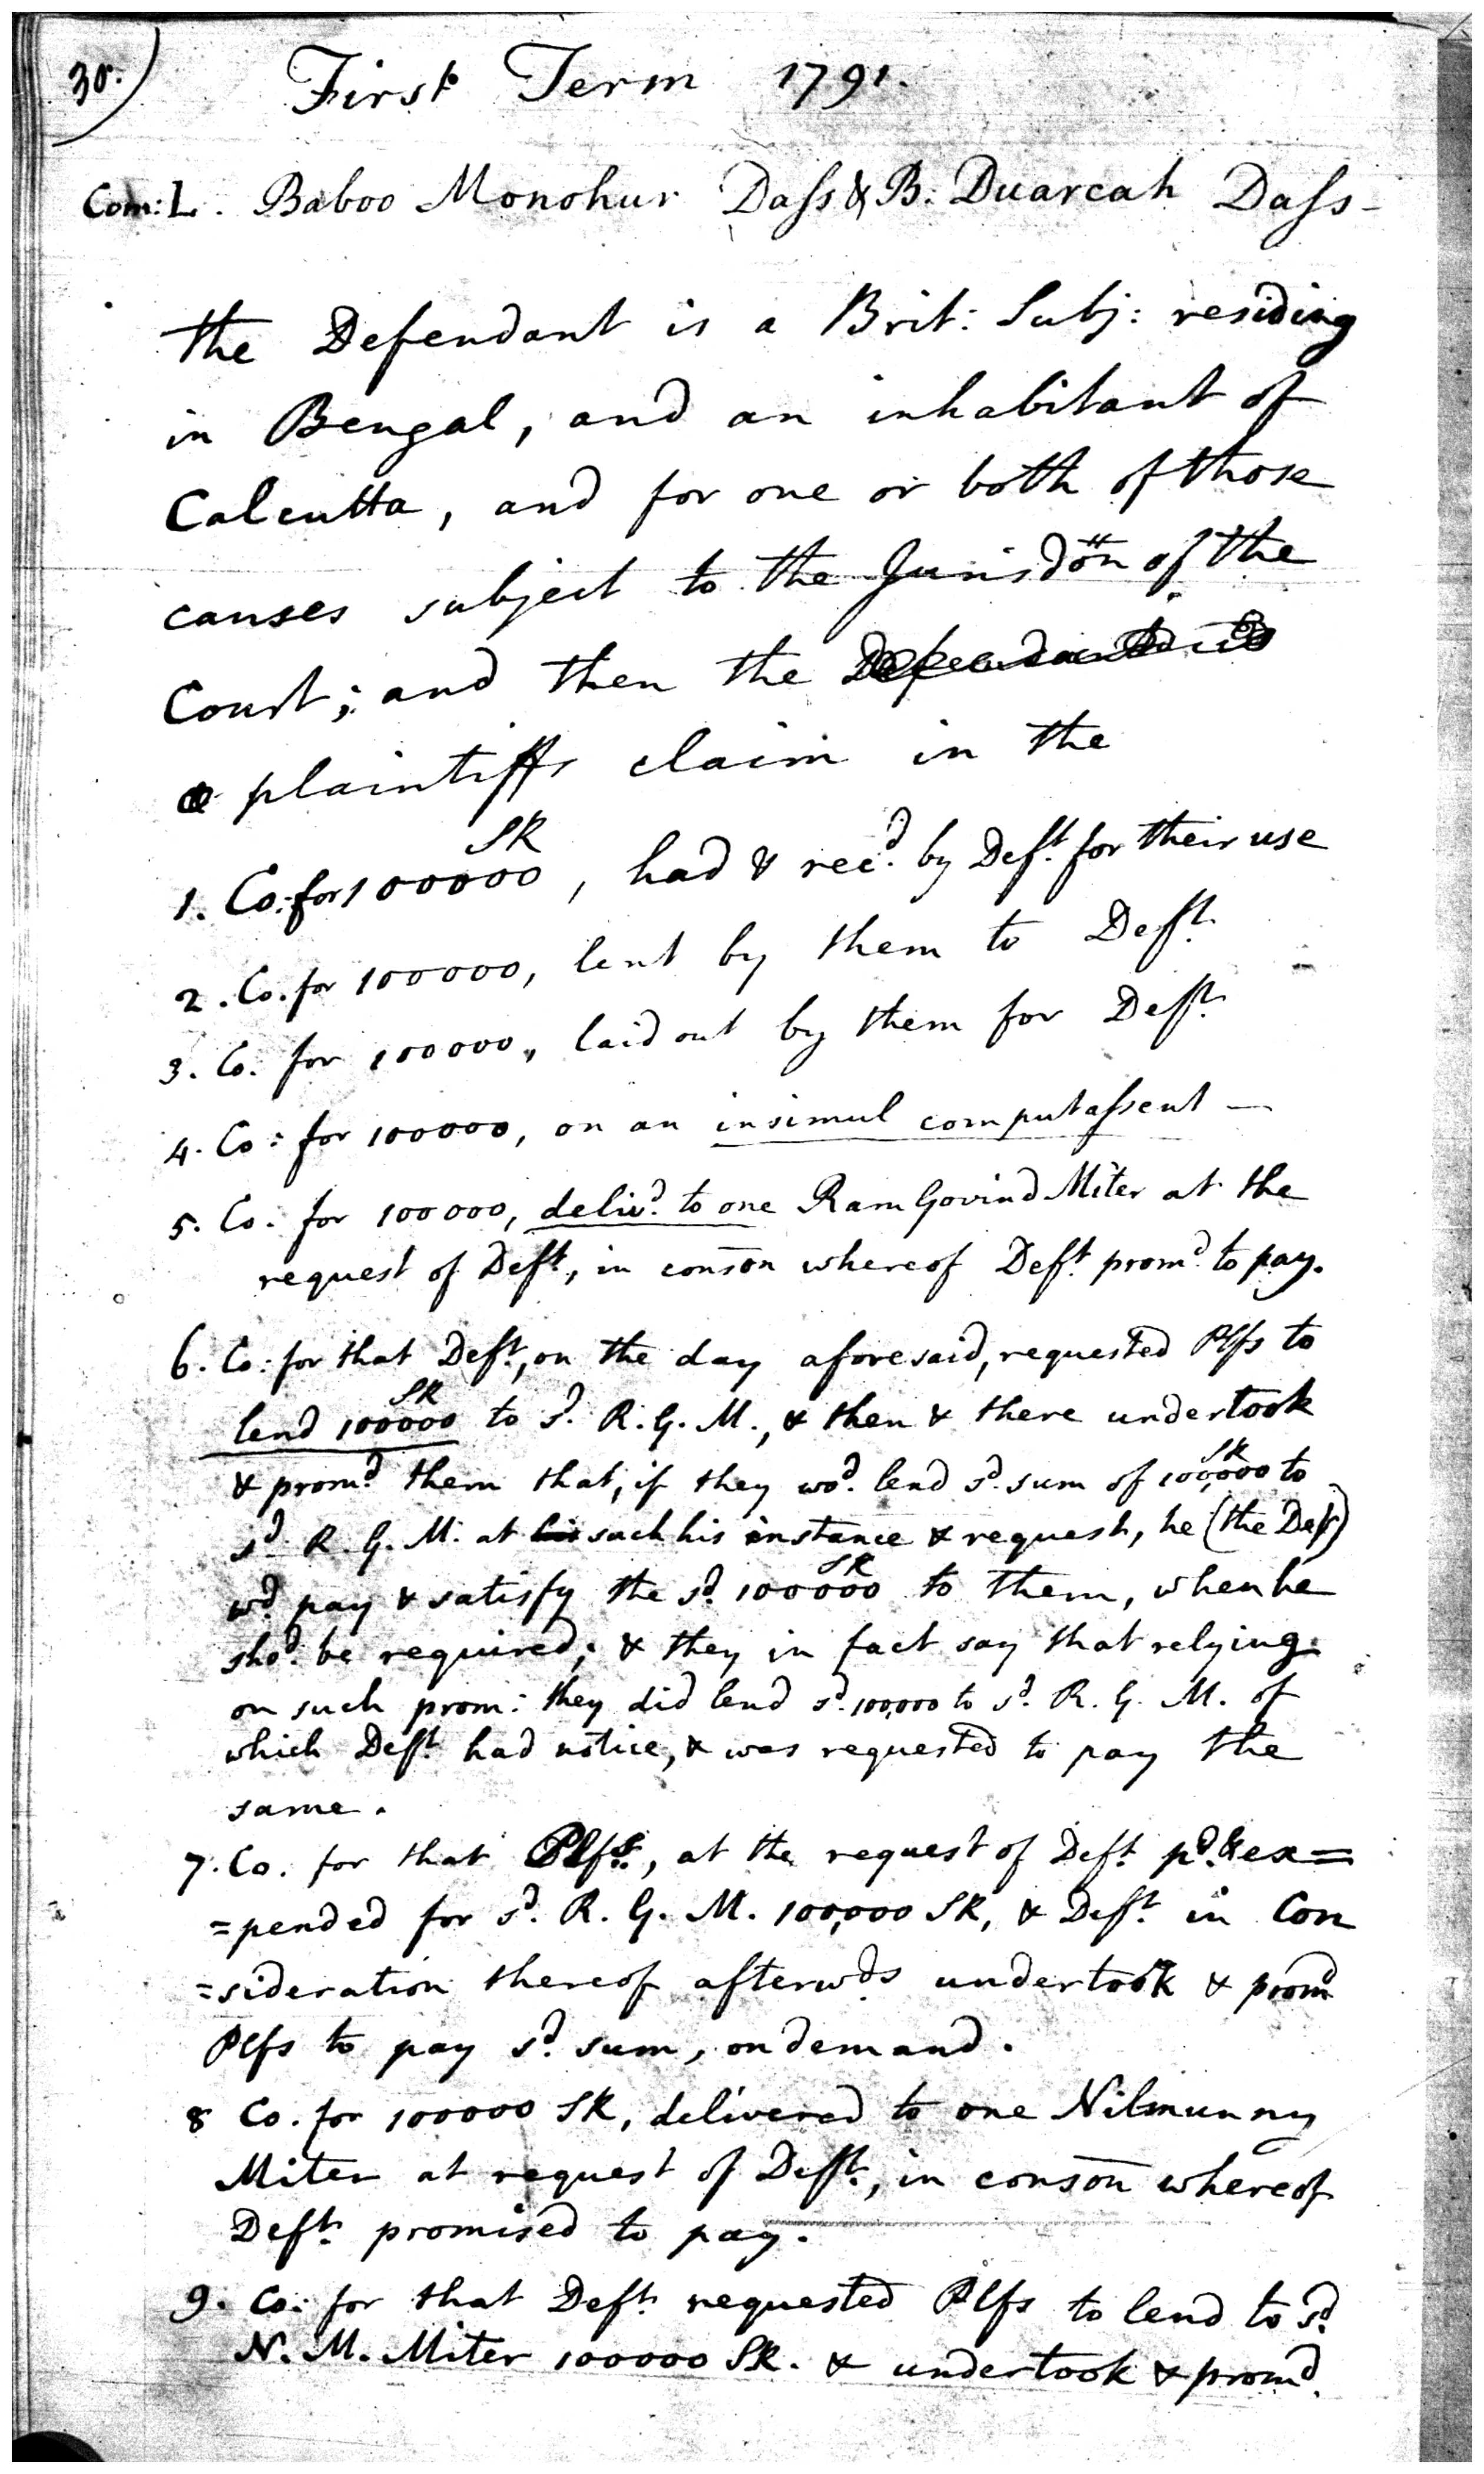 30.)
First Term 1791.
Com: L. Baboo Monohur Dass & B. Duarcah Dass -
the Defendant is a Brit: Subj: residing
in Bengal, and an inhabitant of
Calcutta, and for one or both of those
causes subject to the Jurisdōn of the
Court; and then the
plaintiffs claim in the
1. Co: for 100000 SR, had & rec.d by Def.t for their use
2. Co. for 100000, lent by them to Def.t
3. Co. for 100000, laid out by them for Def.t
4. Co: for 100000, on an insimul computassent —
5. Co. for 100000, deliv.d to one Ram Govind Miter at the
request of Def.t, in consōn whereof Def.t prom.d to pay.
6. Co: for that Def.t, on the day aforesaid, requested Plfs to
lend 100000 SR to s.d R. G. M., & then & there undertook
& prom.d them that, if they wo.d lend s.d sum of 100,000 SR to
s.d R. G. M. at such his instance & request, he (the Def.t)
w.d pay & satisfy the s.d 100000 SR to them, when he
sho.d be required; & they in fact say that relying
on such prom: they did lend s.d 100,000 to s.d R. G. M. of
which Def.t had notice, & was requested to pay the
same.
7. Co. for that Plfs., at the request of Def.t p.d & ex=
=pended for s.d R. G. M. 100,000 SR, & Def.t in Con
=sideration thereof afterw.ds undertook & prom.d
Plfs to pay s.d sum, on demand.
8 Co. for 100000 SR, delivered to one Nilmunny
Miter at request of Def.t, in consōn whereof
Def.t promised to pay.
9. Co: for that Def.t requested Plfs to lend to s.d
N. M. Miter 100000 SR. & undertook & prom.d